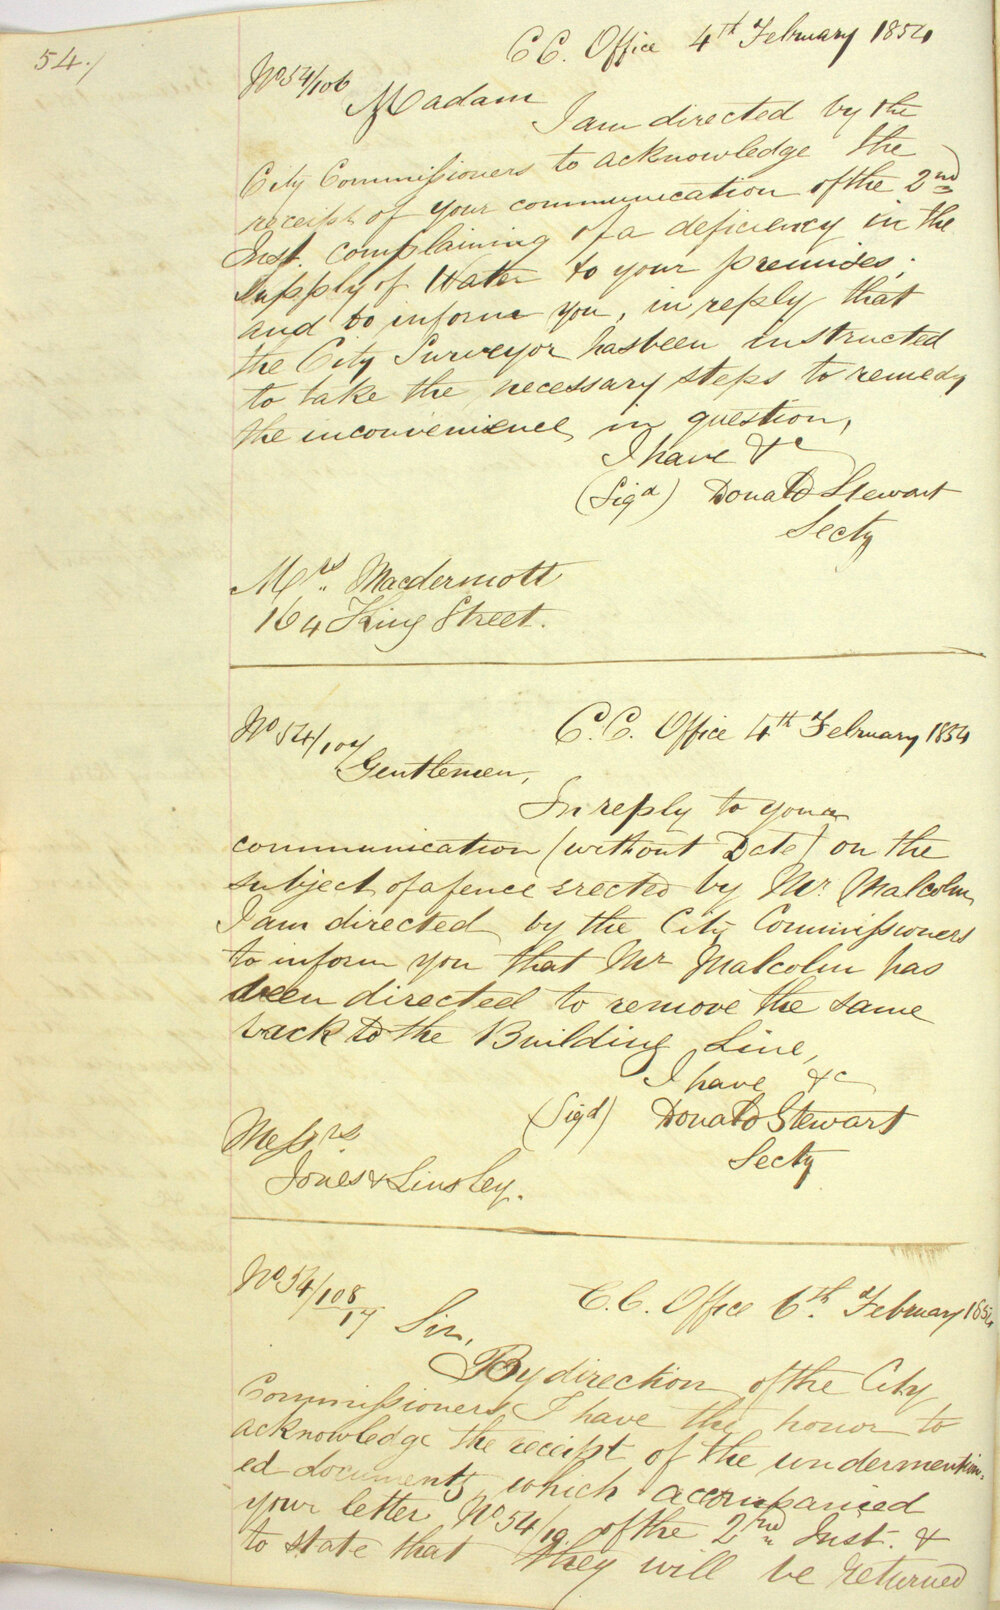 54./
C.C. Office 4th February 1854
No 54/106
Madam
I am directed by the
City Commissioners to acknowledge the
receipt of your communication of the 2nd
Inst. complaining of a deficiency in the
supply of Water to your premises;
and to inform you, in reply that
the City Surveyor has been instructed
to take the necessary steps to remedy
the inconvenience in question,
I have &c
(Sigd) Donald Stewart
Secty
Mrs. Macdermott
164 King Street.
No 54/107
C.C. Office 4th February 1854
Gentlemen,
In reply to your
communication (without Date) on the
subject of a fence erected by Mr. Malcolm
I am directed by the City Commissioners
to inform you that Mr Malcolm has
been directed to remove the same
back to the Building Line,
I have &c
(Sigd) Donald Stewart
Secty
Messrs
Jones & Linsley.
No 54/108/17
C.C. Office 6th. February 1854
Sir,
By direction of the City
Commissioners I have the honor to
acknowledge the receipt of the undermention-
ed documents which accompanied
your letter No 54/19. of the 2nd Inst. &
to state that they will be returned